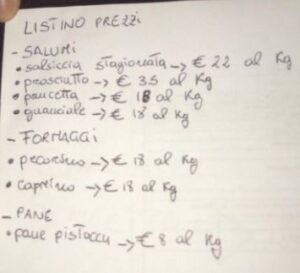 LISTINO PREZZI
- SALUMI
• salsiccia stagionata → € 22 al Kg
• prosciutto → € 35 al Kg
• pancetta → € 18 al Kg
• guanciale → € 18 al Kg
- FORMAGGI
• pecorino → € 18 al Kg
• caprino → € 18 al Kg
- PANE
• pane pistoccu → € 8 al Kg